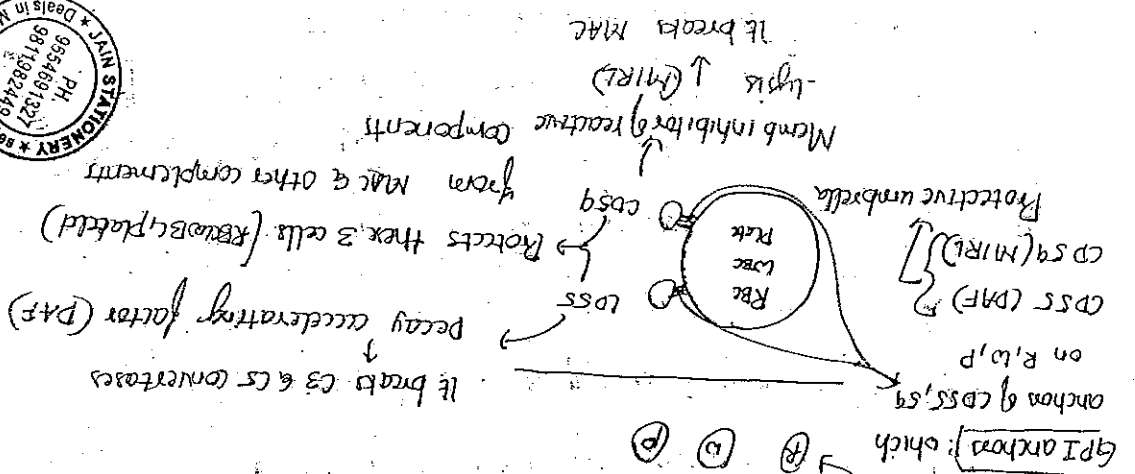 GPI anchors : which
R W P
anchor of CD55, 59
on R, W, P
CD55 (DAF)
CD59 (MIRL)
Protective umbrella
RBC
WBC
Plate
CD55
CD59
It breaks C3 & C5 convertases
Decay accelerating factor (DAF)
Protects these 3 cells (RBC, WBC, platelet)
from MAC & other complements
components
Memb inhibitor of reactive
-lysis (MIRL)
It breaks MAC
★ JAIN STATIONERY ★
PH.
9654691327
9811982449
Deals in